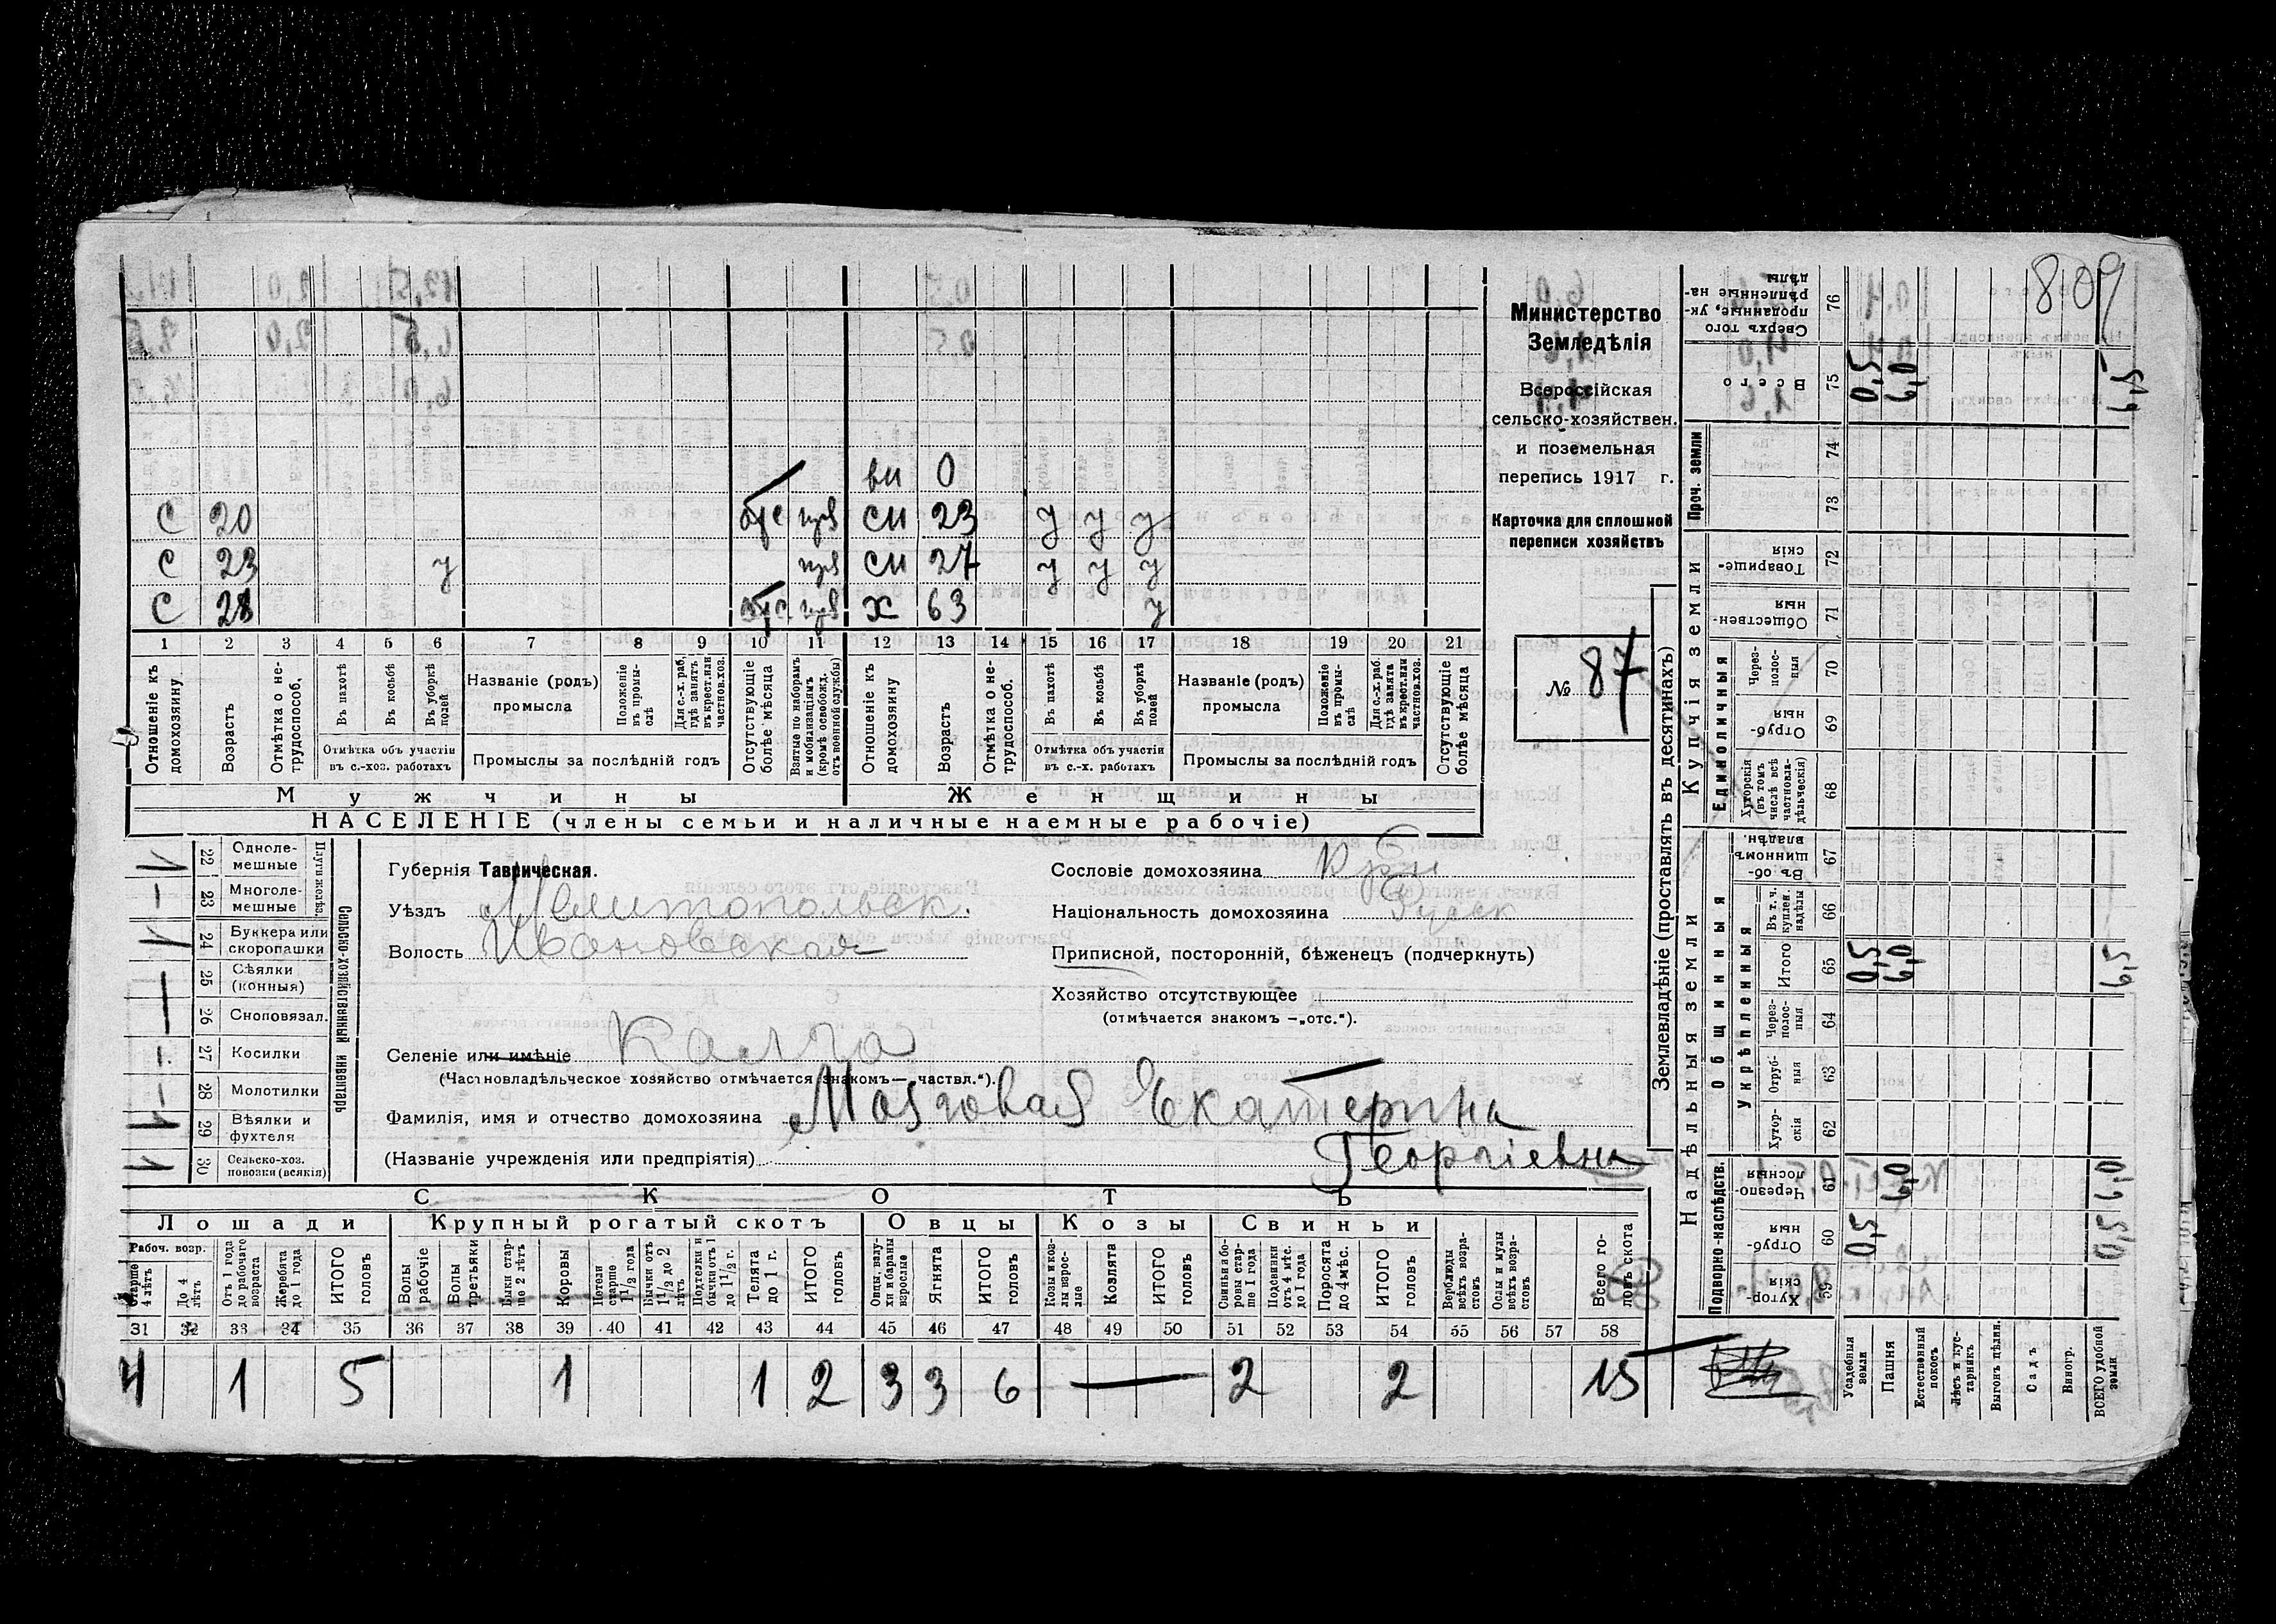 809
Министерство
Земледѣлія
Всероссійская
сельско-хозяйствен.
и поземельная
перепись 1917 г.
Карточка для сплошной
переписи хозяйствъ
№ 87
вн 0
С 20 отс взя сн 23 у у у
С 23 у взя сн 27 у у у
С 28 отс взя х 63 у
1 2 3 4 5 6 7 8 9 10 11 12 13 14 15 16 17 18 19 20 21
Отношеніе къ домохозяину.
Возрастъ
Отмѣтка о не-трудоспособ.
Въ пахотѣ
Въ косьбѣ
Въ уборкѣ полей
Отмѣтка объ участіи въ с.-хоз. работахъ
Названіе (родъ) промысла
Положеніе въ промы-слѣ
Для с.-х. раб. гдѣ занятъ въ крест. или частнов. хоз.
Промыслы за послѣдній годъ
Отсутствующіе болѣе мѣсяца
Взятые по наборамъ и мобилизаціямъ (кромѣ освобожд. отъ военной службы)
Отношеніе къ домохозяину
Возрастъ
Отмѣтка о не-трудоспособ.
Въ пахотѣ
Въ косьбѣ
Въ уборкѣ полей
Отмѣтка объ участіи въ с.-х. работахъ
Названіе (родъ) промысла
Положеніе въ промы-слѣ
Для с.-х. раб. гдѣ занята въ крест. или частнов. хоз.
Промыслы за послѣдній годъ
Отсутствующіе болѣе мѣсяца
Мужчины Женщины
НАСЕЛЕНІЕ (члены семьи и наличные наемные рабочіе)
Сельско-хозяйственный инвентарь
Плуги желѣз.
22 Одноле-мешные 1
23 Многоле-мешные —
24 Буккера или скоропашки 1
25 Сѣялки (конныя) —
26 Сноповязал. —
27 Косилки —
28 Молотилки —
29 Вѣялки и фухтеля 1
30 Сельско-хоз. повозки (всякія) 1
Губернія Таврическая.
Уѣздъ Мелитопольск.
Волость Ивановская
Сословіе домохозяина Крн
Національность домохозяина Русск
Приписной, посторонній, бѣженецъ (подчеркнуть)
Хозяйство отсутствующее
(отмѣчается знакомъ —„отс.“).
Селеніе или имѣніе Калга
(Частновладѣльческое хозяйство отмѣчается знакомъ— „частвл.“).
Фамилія, имя и отчество домохозяина Мозговая Екатерина
(Названіе учрежденія или предпріятія) Георгіевна
СКОТЪ
Лошади Крупный рогатый скотъ Овцы Козы Свиньи
Рабоч. возр.
Старше 4 лѣтъ
До 4 лѣтъ
Отъ 1 года до рабочаго возраста
Жеребята до 1 года
ИТОГО головъ
Волы рабочіе
Волы третьяки
Быки стар-ше 2 лѣтъ
Коровы
Нетели старше 1 1/2 года
Бычки отъ 1 1/2 до 2 лѣтъ
Подтелки и бычки отъ 1 до 1 1/2 г.
Телята до 1 г.
ИТОГО головъ
Овцы, валу-хи и бараны взрослые
Ягнята
ИТОГО головъ
Козы и коз-лы взрос-лые
Козлята
ИТОГО головъ
Свиньи и бо-ровы стар-ше 1 года
Подсвинки отъ 4 мѣс. до 1 года
Поросята до 4 мѣс.
ИТОГО головъ
Верблюды всѣхъ возра-стовъ
Ослы и мулы всѣхъ возра-стовъ
Всего го-ловъ скота
31 32 33 34 35 36 37 38 39 40 41 42 43 44 45 46 47 48 49 50 51 52 53 54 55 56 57 58
4 1 5 1 1 2 3 3 6 — 2 2 15
Землевладѣніе (проставлять въ десятинахъ)
Надѣльныя земли
Купчія земли
Проч. земли
Подворно-наслѣдств.
Общинныя
Укрѣпленныя
Единоличныя
76 Сверхъ того проданные, ук-рѣпленные на-дѣлы
75 Всего 0,5 6,0 6,5
74
73
72 Товарище-скія
71 Обществен-ныя
70 Через-полос-ныя
69 Отруб-ныя
68 Хуторскія (въ томъ числѣ всѣ частновла-дѣльческія)
67 Въ об-щинномъ владѣн.
66 Въ т. ч. куплен. надѣлы
65 Итого 0,5 6,0 6,5
64 Через-полос-ныя
63 Отруб-ныя
62 Хутор-скія
61 Черезпо-лосныя 6,0 6,0
60 Отруб-ныя 0,5 0,5
59 Хутор-скія
Усадебныя земли
Пашня
Естественный покосъ
Лѣсъ и кус-тарникъ
Выгонъ цѣлин.
Садъ
Виногр.
ВСЕГО удобной земли